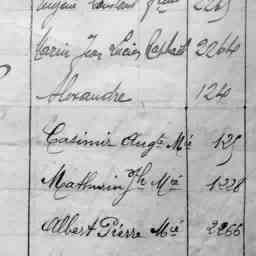 Eugène 2265
Marin Jean Louis Raphaël 2264
Alexandre 1240
Casimir Aug.te M.ie 125
Mathurin J.h M.ie 1228
Albert Pierre M.ie 2266